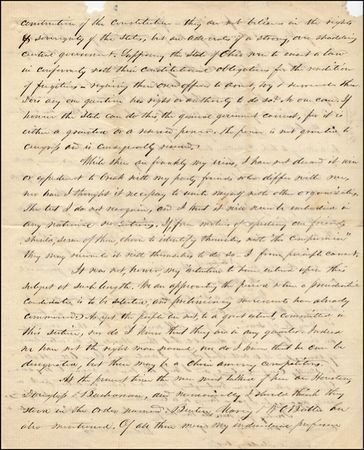 construction of the Constitution - they do not believe in the rights
& sovereignty of the States, but are advocates of a strong, over shadowing
central government. Suppose the State of Ohio were to enact a law
in conformity with their Constitutional obligations for the rendition
of fugitives - requiring their own officers to do so,
does any one question her right or authority to do so? No one can. If
however the State can do this the general government cannot, for it is
either a granted or a reserved power. The power is not granted to
Congress and is consequently reserved.
While these are frankly my views, I have not deemed it wise
or expedient to break with my party friends who differ with me,
nor have I thought it necessary to unite myself with other organizations.
The test I do not recognise, and I trust it will never be embodied in
any national resolutions. If from motives of our friends
should, some of them, choose to identify themselves with the
they may reconcile it with themselves to do so. I from principle cannot.
It was not, however my intention to have dwelt upon this
subject at such length. We are approaching the period when a presidential
candidate is to be selected, and preliminary movements have already
commenced. As yet the people are not to a great extent committed in
this section, nor do I know that they are in any quarter. Indeed
we have not the right man now, nor do I know that he can be
designated, but there may be a choice among competitors.
At the present time the men most talked of here are Houston,
Douglas & Buchanan, and numerically I should think they
stood in the order named. Benton, Marcy, W O Butler are
also mentioned. Of all these men my individual preference